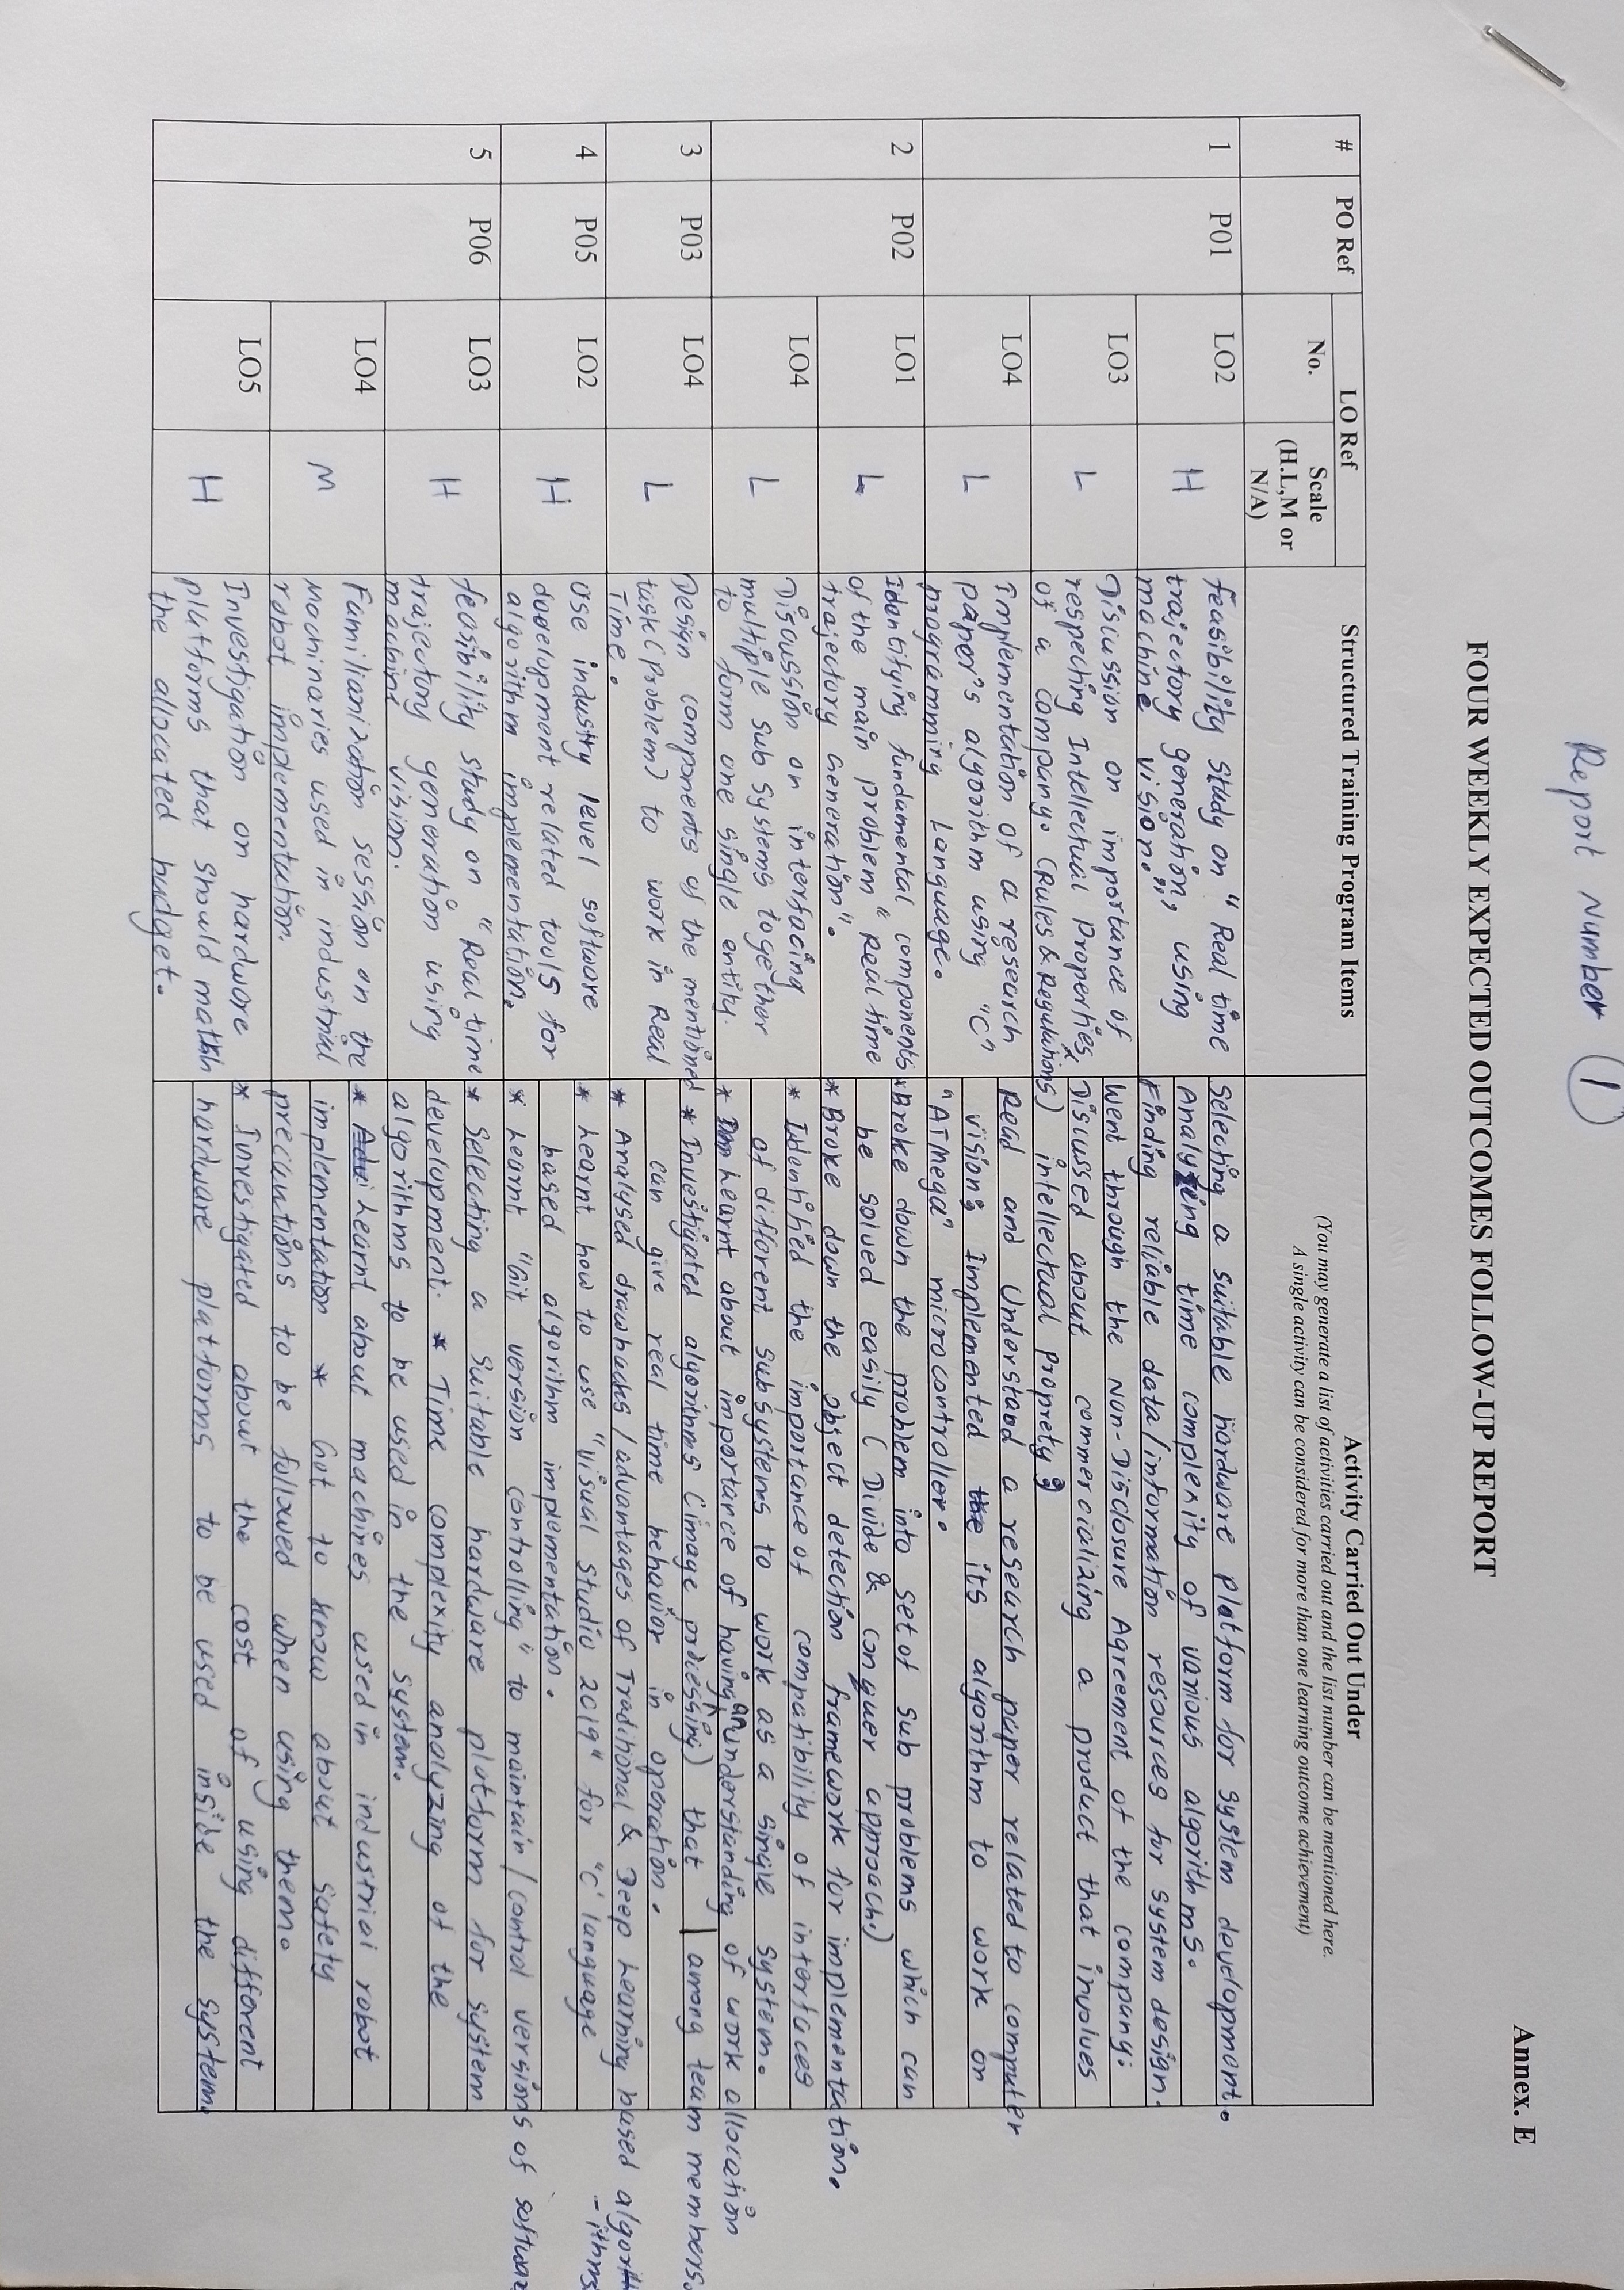 Report Number 1
Annex. E
FOUR WEEKLY EXPECTED OUTCOMES FOLLOW-UP REPORT
# PO Ref LO Ref Structured Training Program Items Activity Carried Out Under
No. Scale (H.L,M or N/A)
(You may generate a list of activities carried out and the list number can be mentioned here.
A single activity can be considered for more than one learning outcome achievement)
1 P01 LO2 H
feasibility study on " Real time
trajectory generation, using
machine vision."
Selecting a suitable hardware Platform for system development.
Analyzing time complexity of various algorithms.
Finding reliable data/information resources for system design.
LO3 L
Discussion on importance of
respecting Intellectual Properties
of a company. (Rules & Regulations)
Went through the Non-Disclosure Agreement of the company.
Discussed about commercializing a product that involves
intellectual Proprety
LO4 L
Implementation of a research
paper's algorithm using "C"
programming Language.
Read and Understood a research paper related to computer
vision; Implemented the its algorithm to work on
"ATMega" microcontroller.
2 P02 LO1 L
Identifying fundamental components
of the main problem " Real time
trajectory Generation".
*Broke down the problem into set of sub problems which can
be solved easily ( Divide & conquer approach.)
* Broke down the object detection framework for implementation.
LO4 L
Discussion on interfacing
multiple sub systems together
to form one single entity.
* Identified the importance of compatibility of interfaces
of different subsystems to work as a single system.
* Learnt about importance of having an understanding of work allocation
among team members.
3 P03 LO4 L
Design components of the mentioned
task (Problem) to work in Real
Time.
* Investigated algorithms (image processing) that
can give real time behavior in operation.
* Analysed drawbacks / advantages of Traditional & Deep Learning based algor
-ithms
4 P05 LO2 H
Use industry level software
development related tools for
algorithm implementation.
* Learnt how to use "Visual Studio 2019" for "C" language
based algorithm implementation.
* Learnt "Git version controlling" to maintain / control versions of softwar
5 P06 LO3 H
feasibility study on " Real time
trajectory generation using
machine vision.
* Selecting a Suitable hardware platform for system
development. * Time complexity analyzing of the
algorithms to be used in the system.
LO4 M
Familiarization session on the
Machinaries used in industrial
robot implementation.
* Learnt about machines used in industrial robot
implementation * Got to know about safety
precautions to be followed when using them.
LO5 H
Investigation on hardware
platforms that should match
the allocated budget.
* Investigated about the cost of using different
hardware platforms to be used inside the system.